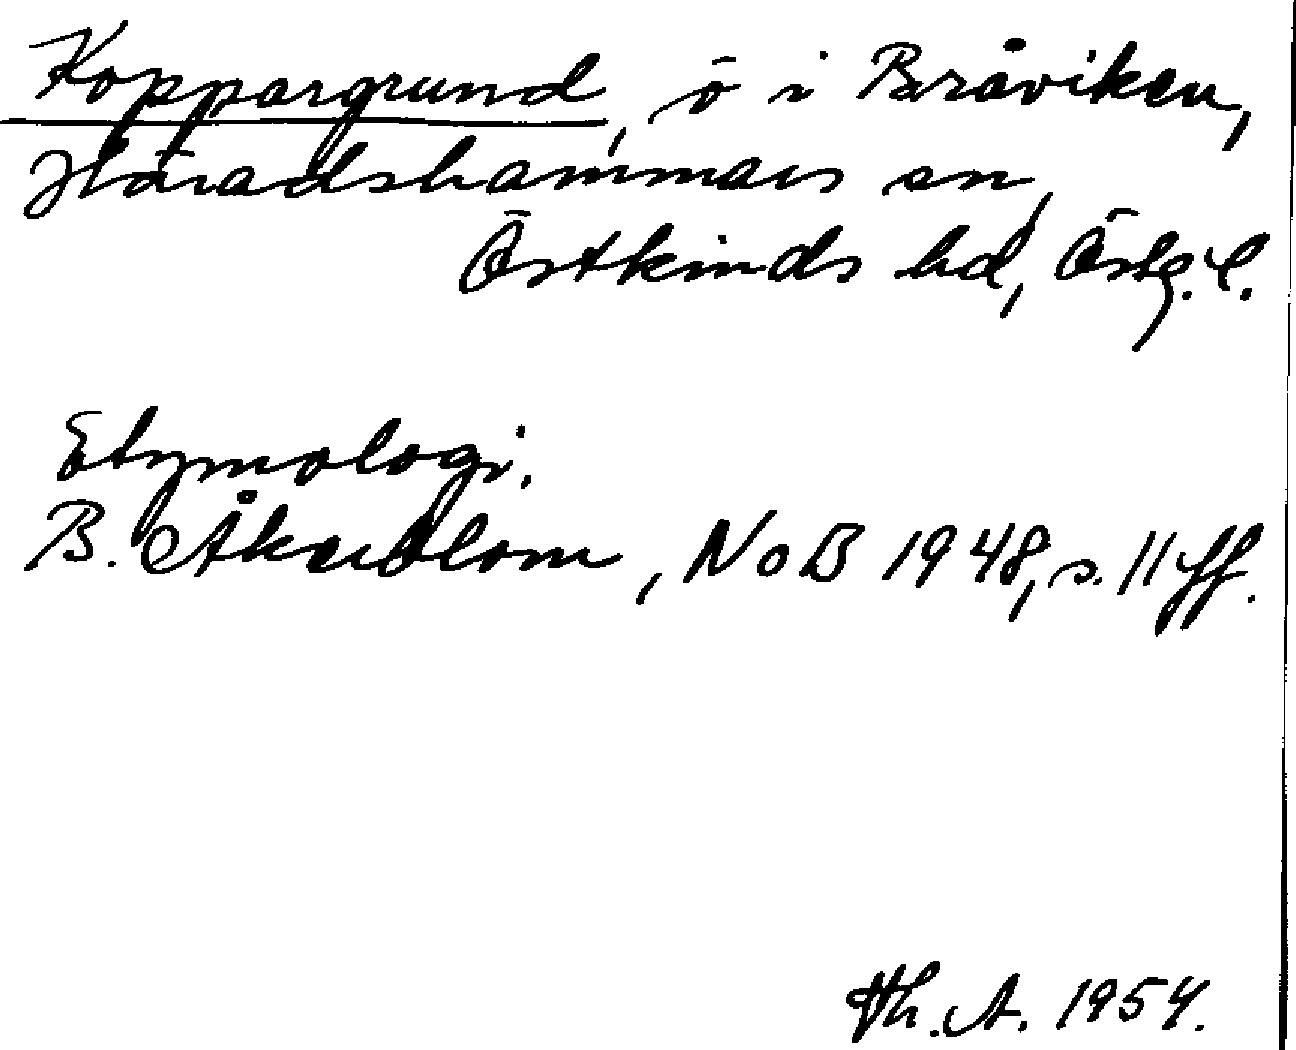 Koppargrund, ö i Bråviken,
Häradshammars sn,
Östkinds hd, Östg. l.
Etymologi.
B. Åkerblom, NoB 1948, s. 11 ff.
Th. A. 1954.